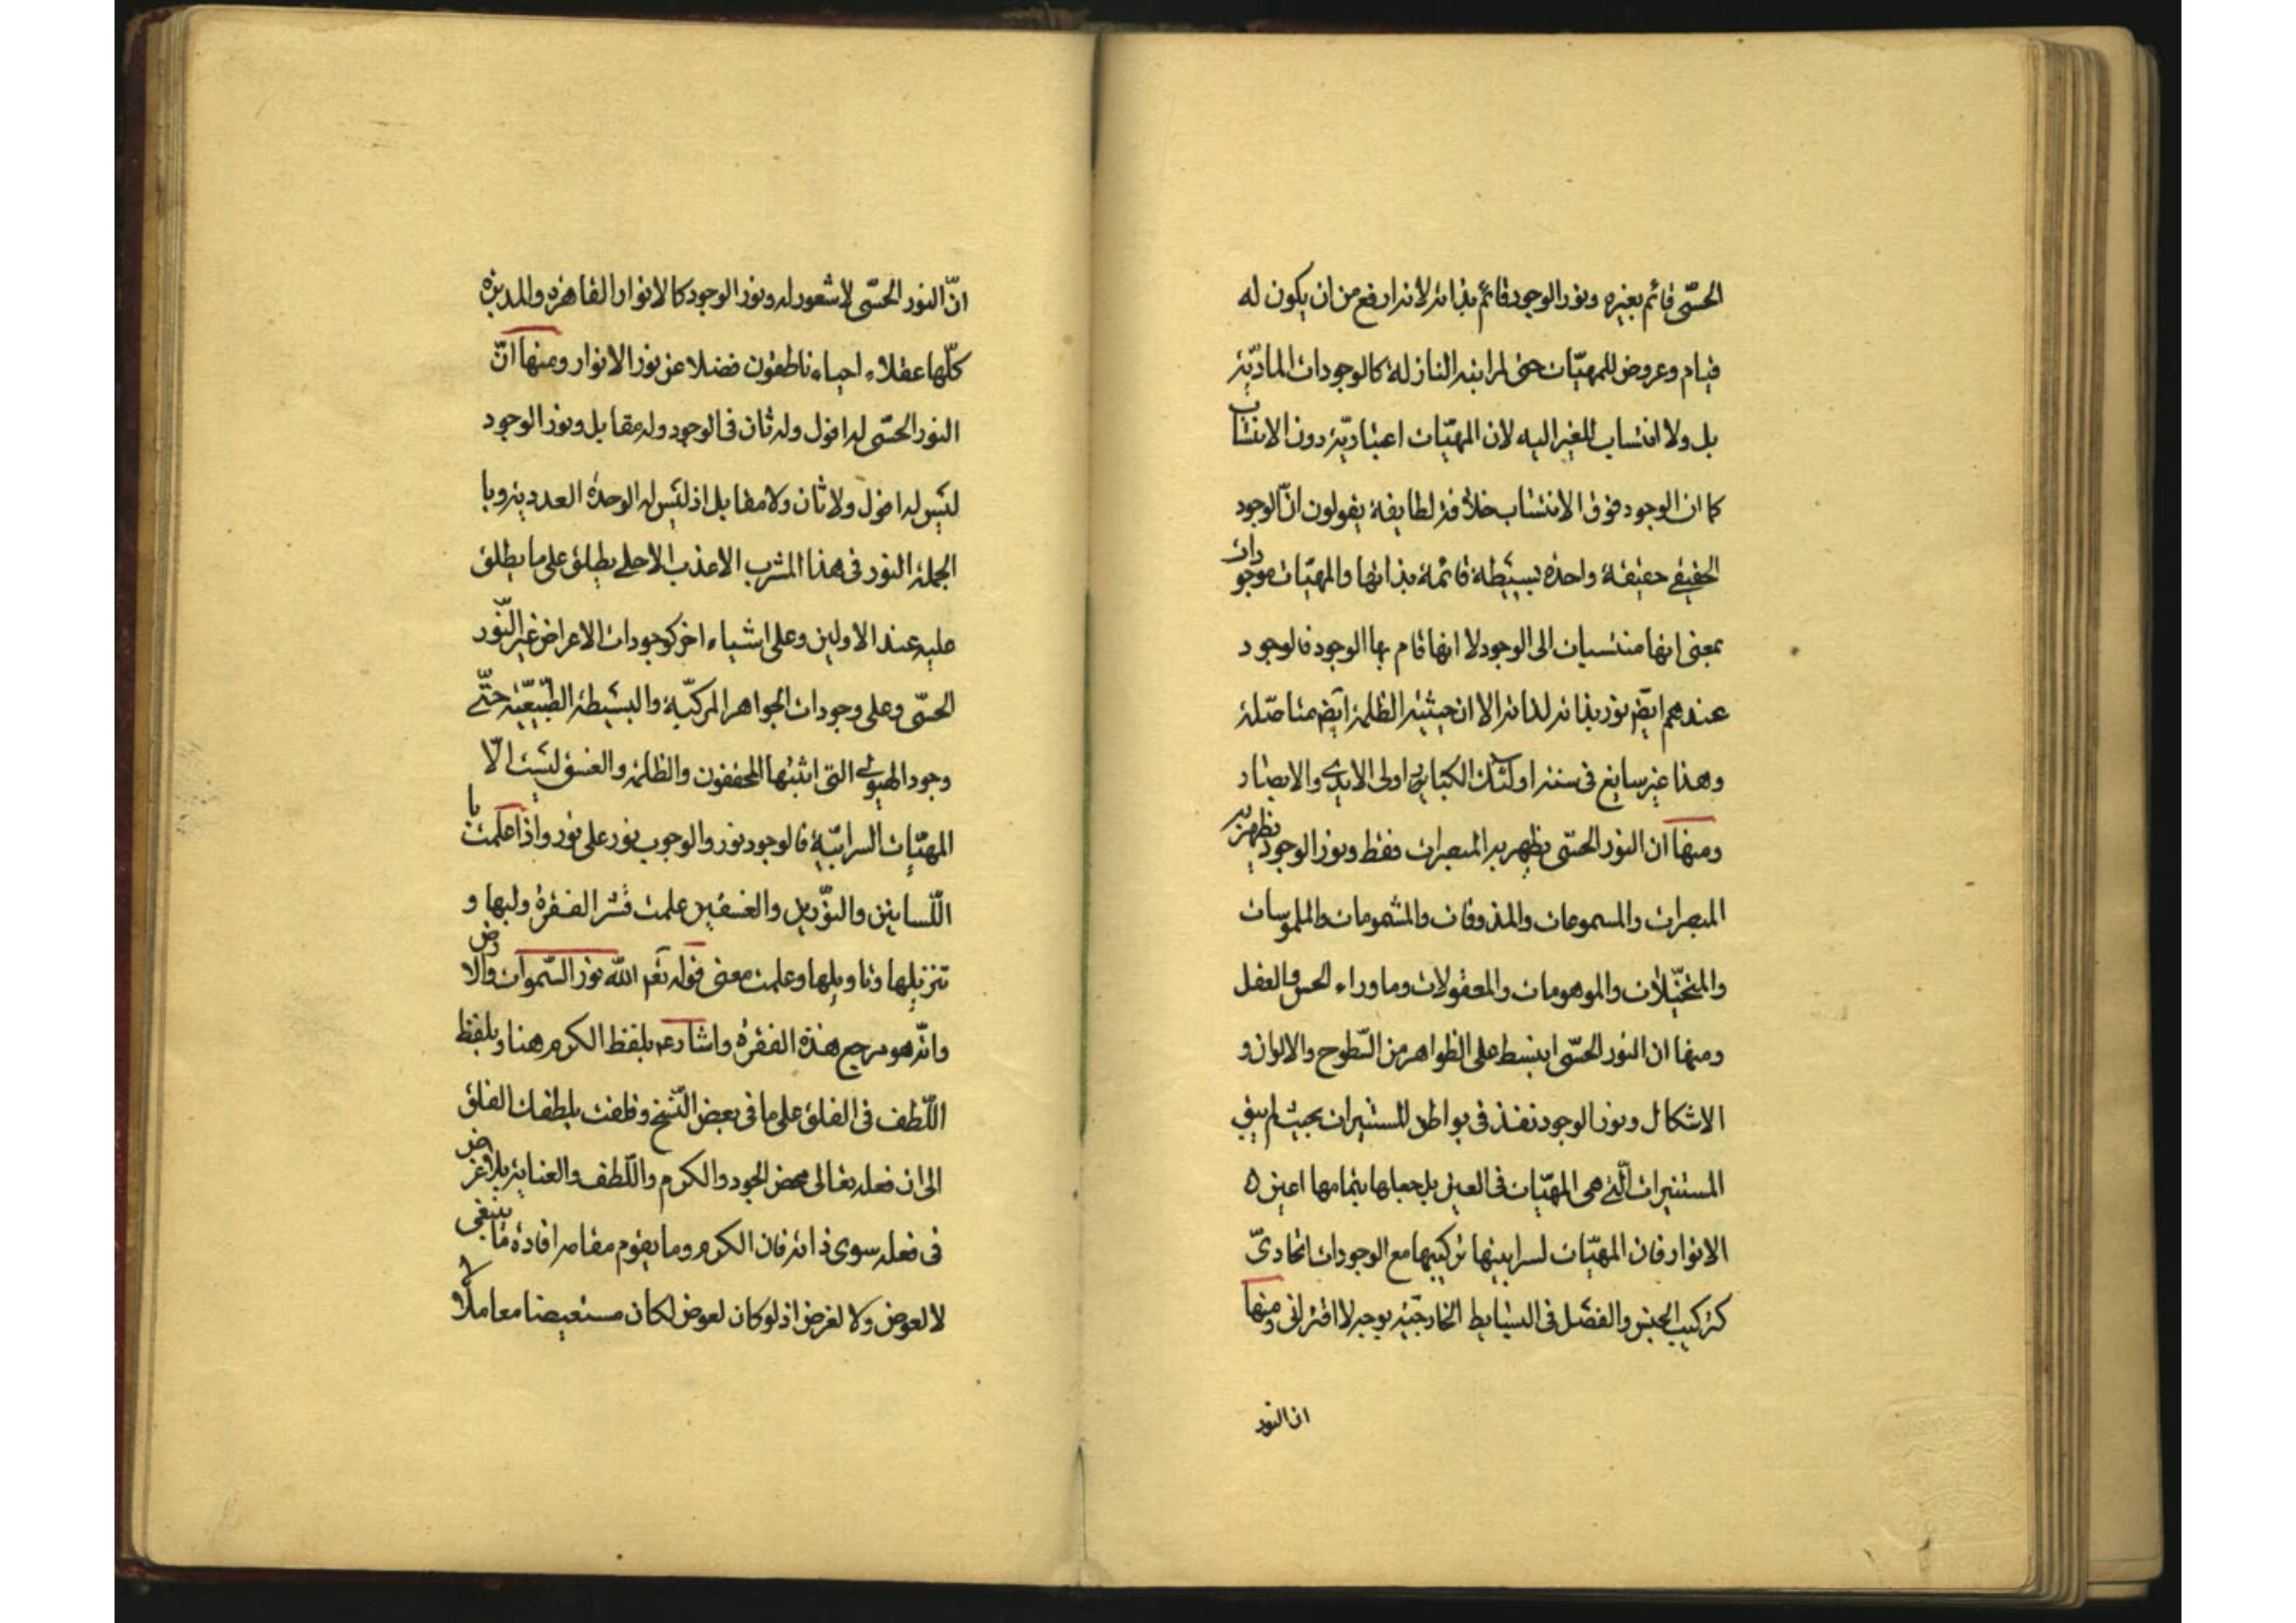 الحسّى قائم بغيره ونور الوجود قائم بذاته لانه ارفع من ان يكون له
قيام وعروض للمهيّات حتى لمراتبه النازلة كالوجودات الماديّة
بل ولا انتساب للغير اليه لان المهيّات اعتباريّة دون الانتساب
كما ان الوجود فوق الانتساب خلافه لطايفة يقولون انّ الوجود
الحقيقى حقيقة واحدة بسيطة قائمة بذاتها والمهيّات موجودات
بمعنى انها منتسبات الى الوجود لا انها قام بها الوجود فالوجود
عندهم ايض نور بذاته لذاته الا ان حيثية الظلمة ايض متاصّلة
وهذا غير سايغ فى سنة اولئك الكبابى اولى الايدى والابصار
ومنها ان النور الحسّى يظهر به المبصرات فقط ونور الوجود يظهر به
المبصرات والمسموعات والمذوقات والمشمومات والملموسات
والمتخيّلات والموهومات والمعقولات وما وراء الحس والعقل
ومنها ان النور الحسّى انبسط على الظواهر من السّطوح والالوان و
الاشكال ونور الوجود نفذ فى بواطن المستنيرات بحيث لم يبق
المستنيرات الّتى هى المهيّات فى العين بل جعلها بتمامها اعين ه
الانوار فان المهيّات لسرابيتها تركيبها مع الوجودات اتحادىّ
كتركيب الجنس والفصل فى البسايط الخارجيّة بوجه لا اقترانى ومنها
ان النور
انّ النور الحسّى لا شعور له ونور الوجود كالانوار القاهرة والمدبرة
كلّها عقلاء احياء ناطقون فضلا عن نور الانوار ومنها انّ
النور الحسّى له افول وله ثان فى الوجود وله مقابل ونور الوجود
ليس له افول ولا ثان ولا مقابل اذ ليس له الوحدة العددية وبا
الجملة النور فى هذا المشرب الاعذب الاحلى يطلق على ما يطلق
عليه عند الاولين وعلى اشياء اخر كوجودات الاعراض غير النّور
الحسّى وعلى وجودات الجواهر المركّبة والبسيطة الطّبيعيّة حتّى
وجود الهيولى التى اثبتها المحققون والظلمة والغسق ليست الّا
المهيّات السرابيّة فالوجود نور والوجوب نور على نور واذا علمت با
اللّسانين والنّورين والغسقين علمت قشر الفقرة ولبها و
تنزيلها وتاويلها وعلمت معنى قوله تعم الله نور السّموات والارض
وانّه هو مرجع هذة الفقرة واشار عم بلفظ الكرم هنا وبلفظ
اللّطف فى الفلق على ما فى بعض النّسخ وفلقت بلطفك الفلق
الى ان فعله تعالى محض الجود والكرم واللّطف والعناية بلا غرض
فى فعله سوى ذاته فان الكرم وما يقوم مقامه افادة ما ينبغى
لا لعوض ولا لغرض اذ لو كان لعوض لكان مستعيضا معاملا لا